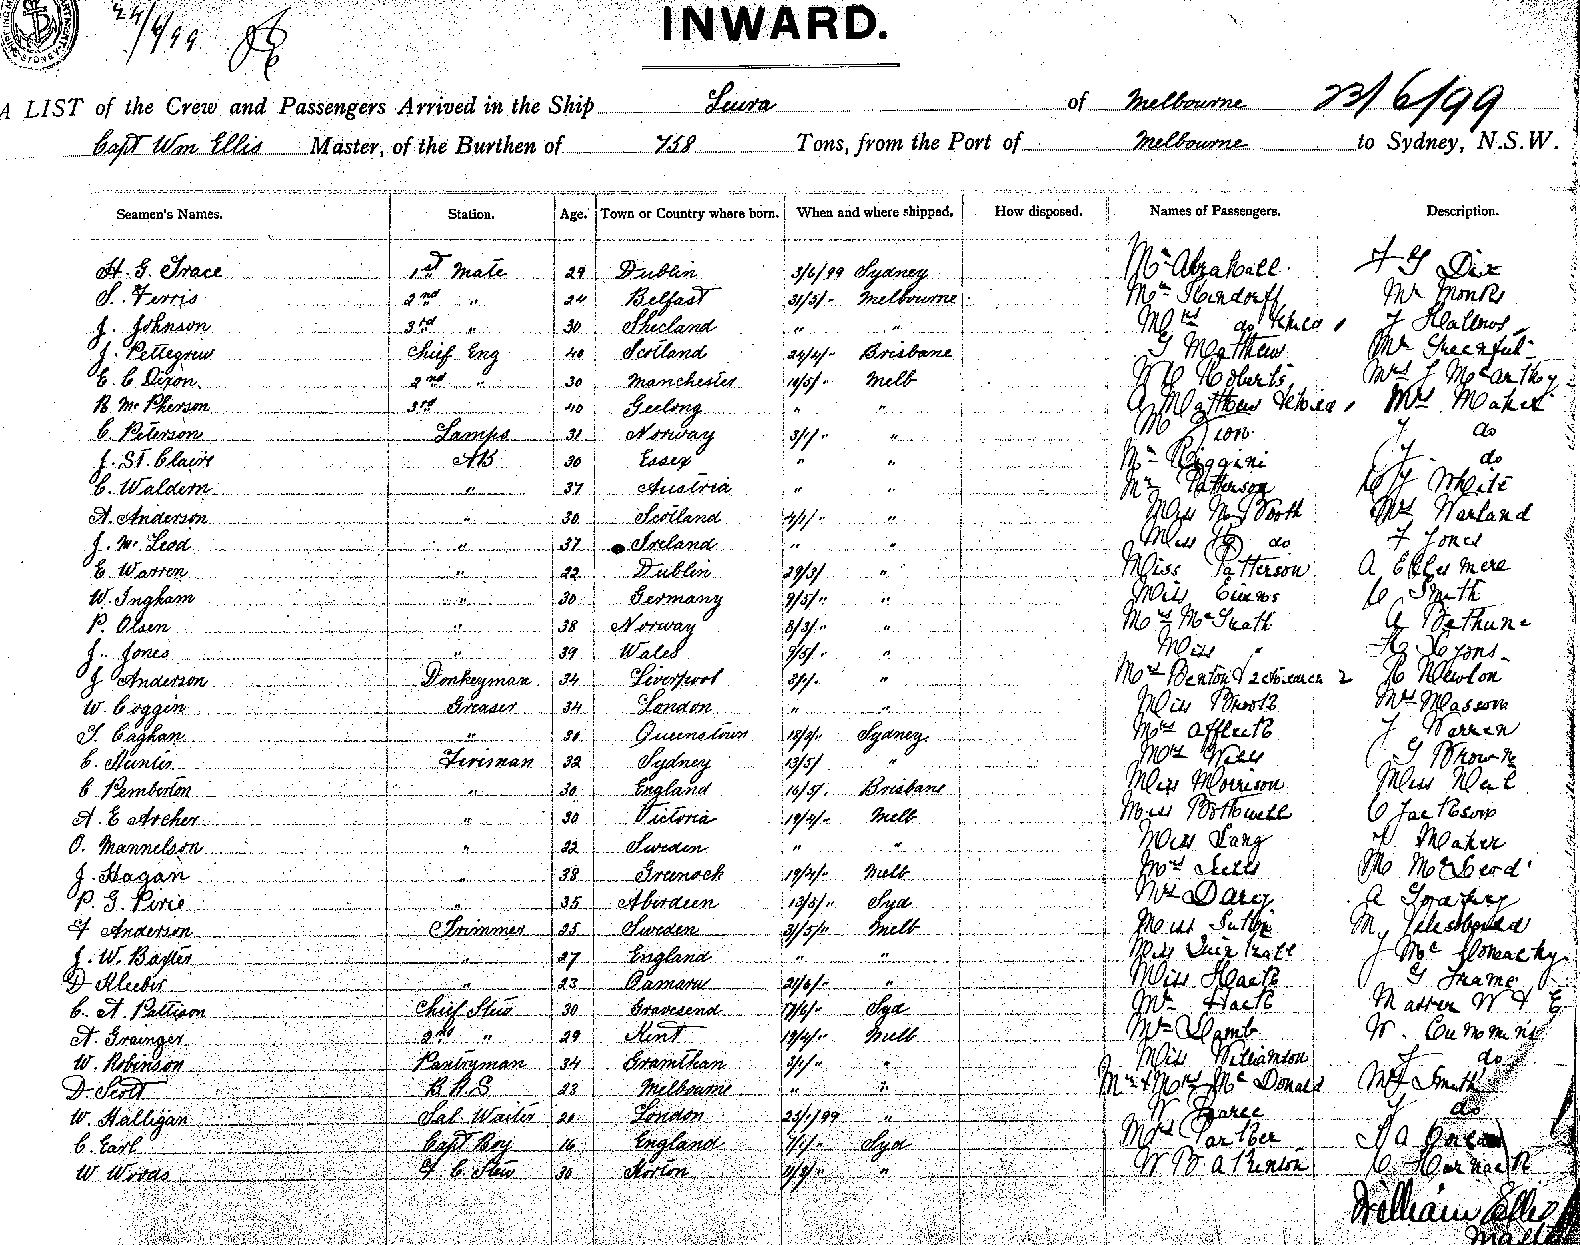 24/6/99
INWARD.
A LIST of the Crew and Passengers Arrived in the Ship Leura of Melbourne 23/6/99
Capt Wm Ellis Master, of the Burthen of 758 Tons, from the Port of Melbourne to Sydney, N.S.W.
Seamen's Names. Station. Age. Town or Country where born. When and where shipped. How disposed. Names of Passengers. Description.
H. G. Grace 1st Mate 29 Dublin 3/6/99 Sydney Mr F G Dix
S. Ferris 2nd " 24 Belfast 31/3/- Melbourne Mr Mr Monks
J. Johnson 3rd " 30 Shetland " " Mrs do & child 1 J Hallows
J. Pettegrew Chief Eng 40 Scotland 24/4/- Brisbane G Matthew Mr
E. C Dixon 2nd " 30 Manchester 10/5/- Melb Roberts Mrs J McCarthy
R McPherson 3rd 40 Geelong " " Matthew & child 1 Mrs Maher
C Peterson Lamps 31 Norway 3/1/- " J do
J. St. Claire AB 30 Essex " " Mr Riggini J. do
C. Waldern " 37 Austria " " Mr Patterson White
A. Anderson " 30 Scotland 4/1/- " Miss M Booth Mrs Warland
J. McLeod " 37 Ireland " " Miss do F Jones
E Warren " 22 Dublin 29/3/ " Miss Patterson A Ellesmere
W. Ingham " 30 Germany 9/5/- " Miss Evans C Smith
P. Olsen " 38 Norway 8/3/- " Mrs McGrath A Bethune
J. Jones " 39 Wales 9/5/- " Miss " H Lyons
J Anderson Donkeyman 34 Liverpool 3/1/- " Mrs Benton & 2 children 2 H Newton
W. Coggin Greaser 34 London " " Miss Brooks Mrs Masson
T. Caghan " Queenstown Sydney Mrs Affleck J Warren
C. Hunter Fireman 32 Sydney 13/5/ " Mrs Wills G Brown
C Pemberton " 30 England 16/5/- Brisbane Miss Morrison Miss Neil
A. E Archer " 30 Victoria 19/4/- Melb Miss Bothwell C Jackson
O. Mannelson " 22 Sweden " " Miss Lang Maher
J. Hagan " 38 Greenock 19/4/- Melb Mrs M McLeod
P. G. Pirie " 35 Aberdeen 13/5/- Syd Mrs Darcy A
F Anderson Trimmer 25 Sweden 3/5/- Melb Miss M
J. W. Baxter " 27 England " " Miss J
D Kleeber " 23 Oamaru 21/6/- " Miss Hack G Frame
C. A. Pattison Chief Stew 30 Gravesend Syd Mr Hack Master W & E
A. Grainger 2nd " 29 Kent 19/4/- Melb Mr Lamb W. Cummins
W. Robinson Pantryman 34 Grantham 3/1/- " Miss Williamson J do
D. Scott B.R.S 23 Melbourne " " Mr & Mrs McDonald Smith
W. Halligan Sal Waiter London 25/1/99 " W Pearce J do
C. Earl Capt Boy 16 England Syd Mrs Parker
W Woods F C Stew 30 Norton " W Watkinson C
William Ellis
Master